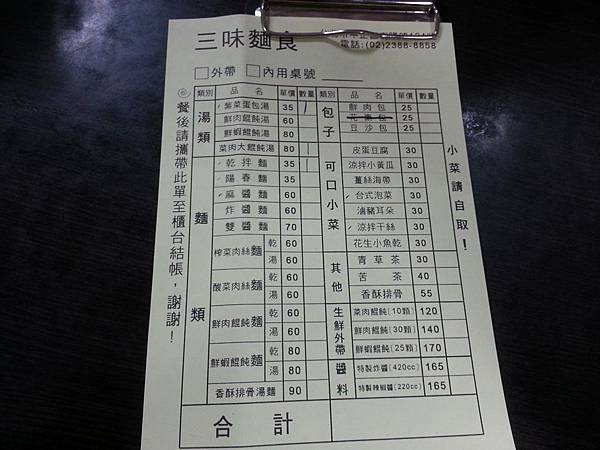 三味麵食
電話:(02)2388-8858
□外帶 □內用桌號
類別 品名 單價 數量
湯類
紫菜蛋包湯 35
鮮肉餛飩湯 60
鮮蝦餛飩湯 80
菜肉大餛飩湯 80
麵類
乾拌麵 35
陽春麵 35
麻醬麵 60
炸醬麵 60
雙醬麵 70
榨菜肉絲麵 乾 60
湯 60
酸菜肉絲麵 乾 60
湯 60
鮮肉餛飩麵 乾 60
湯 60
鮮蝦餛飩麵 乾 80
湯 80
香酥排骨湯麵 90
類別 品名 單價 數量
包子
鮮肉包 25
花素包 25
豆沙包 25
可口小菜
皮蛋豆腐 30
涼拌小黃瓜 30
薑絲海帶 30
台式泡菜 30
滷豬耳朵 30
涼拌干絲 30
花生小魚乾 30
其他
青草茶 30
苦茶 40
香酥排骨 55
生鮮外帶
菜肉餛飩(10顆) 120
鮮肉餛飩(30顆) 140
鮮蝦餛飩(25顆) 170
醬料
特製炸醬(420cc) 165
特製辣椒醬(220cc) 165
合計
小菜請自取!
◎餐後請攜帶此單至櫃台結帳,謝謝!